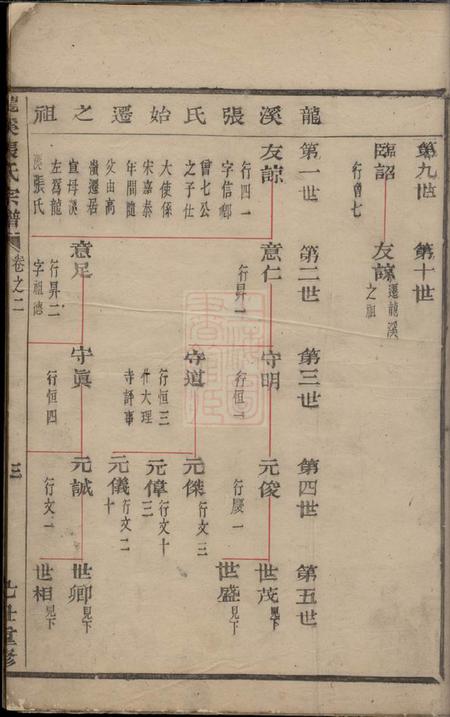 第九世
第十世
臨詔
行曾七
友諒
遷龍溪
之祖
龍溪張氏始遷之祖
第一世
第二世
第三世
第四世
第五世
友諒
行四一
字信卿
曾七公
之子仕
大使係
宋嘉泰
年間隨
父由高
嶺遷居
左為龍
張氏
意仁
行昇一
意足
行昇二
字祖德
守明
行恒一
守道
行恒三
仕大理
寺評事
守眞
行恒四
元俊
行慶一
元傑
行文三
元偉
行文十
三
元儀
行文二
十
元誠
行文一
世茂
見下
世盛
見下
世卿
見下
世相
見下
張氏宗譜
卷之二
三